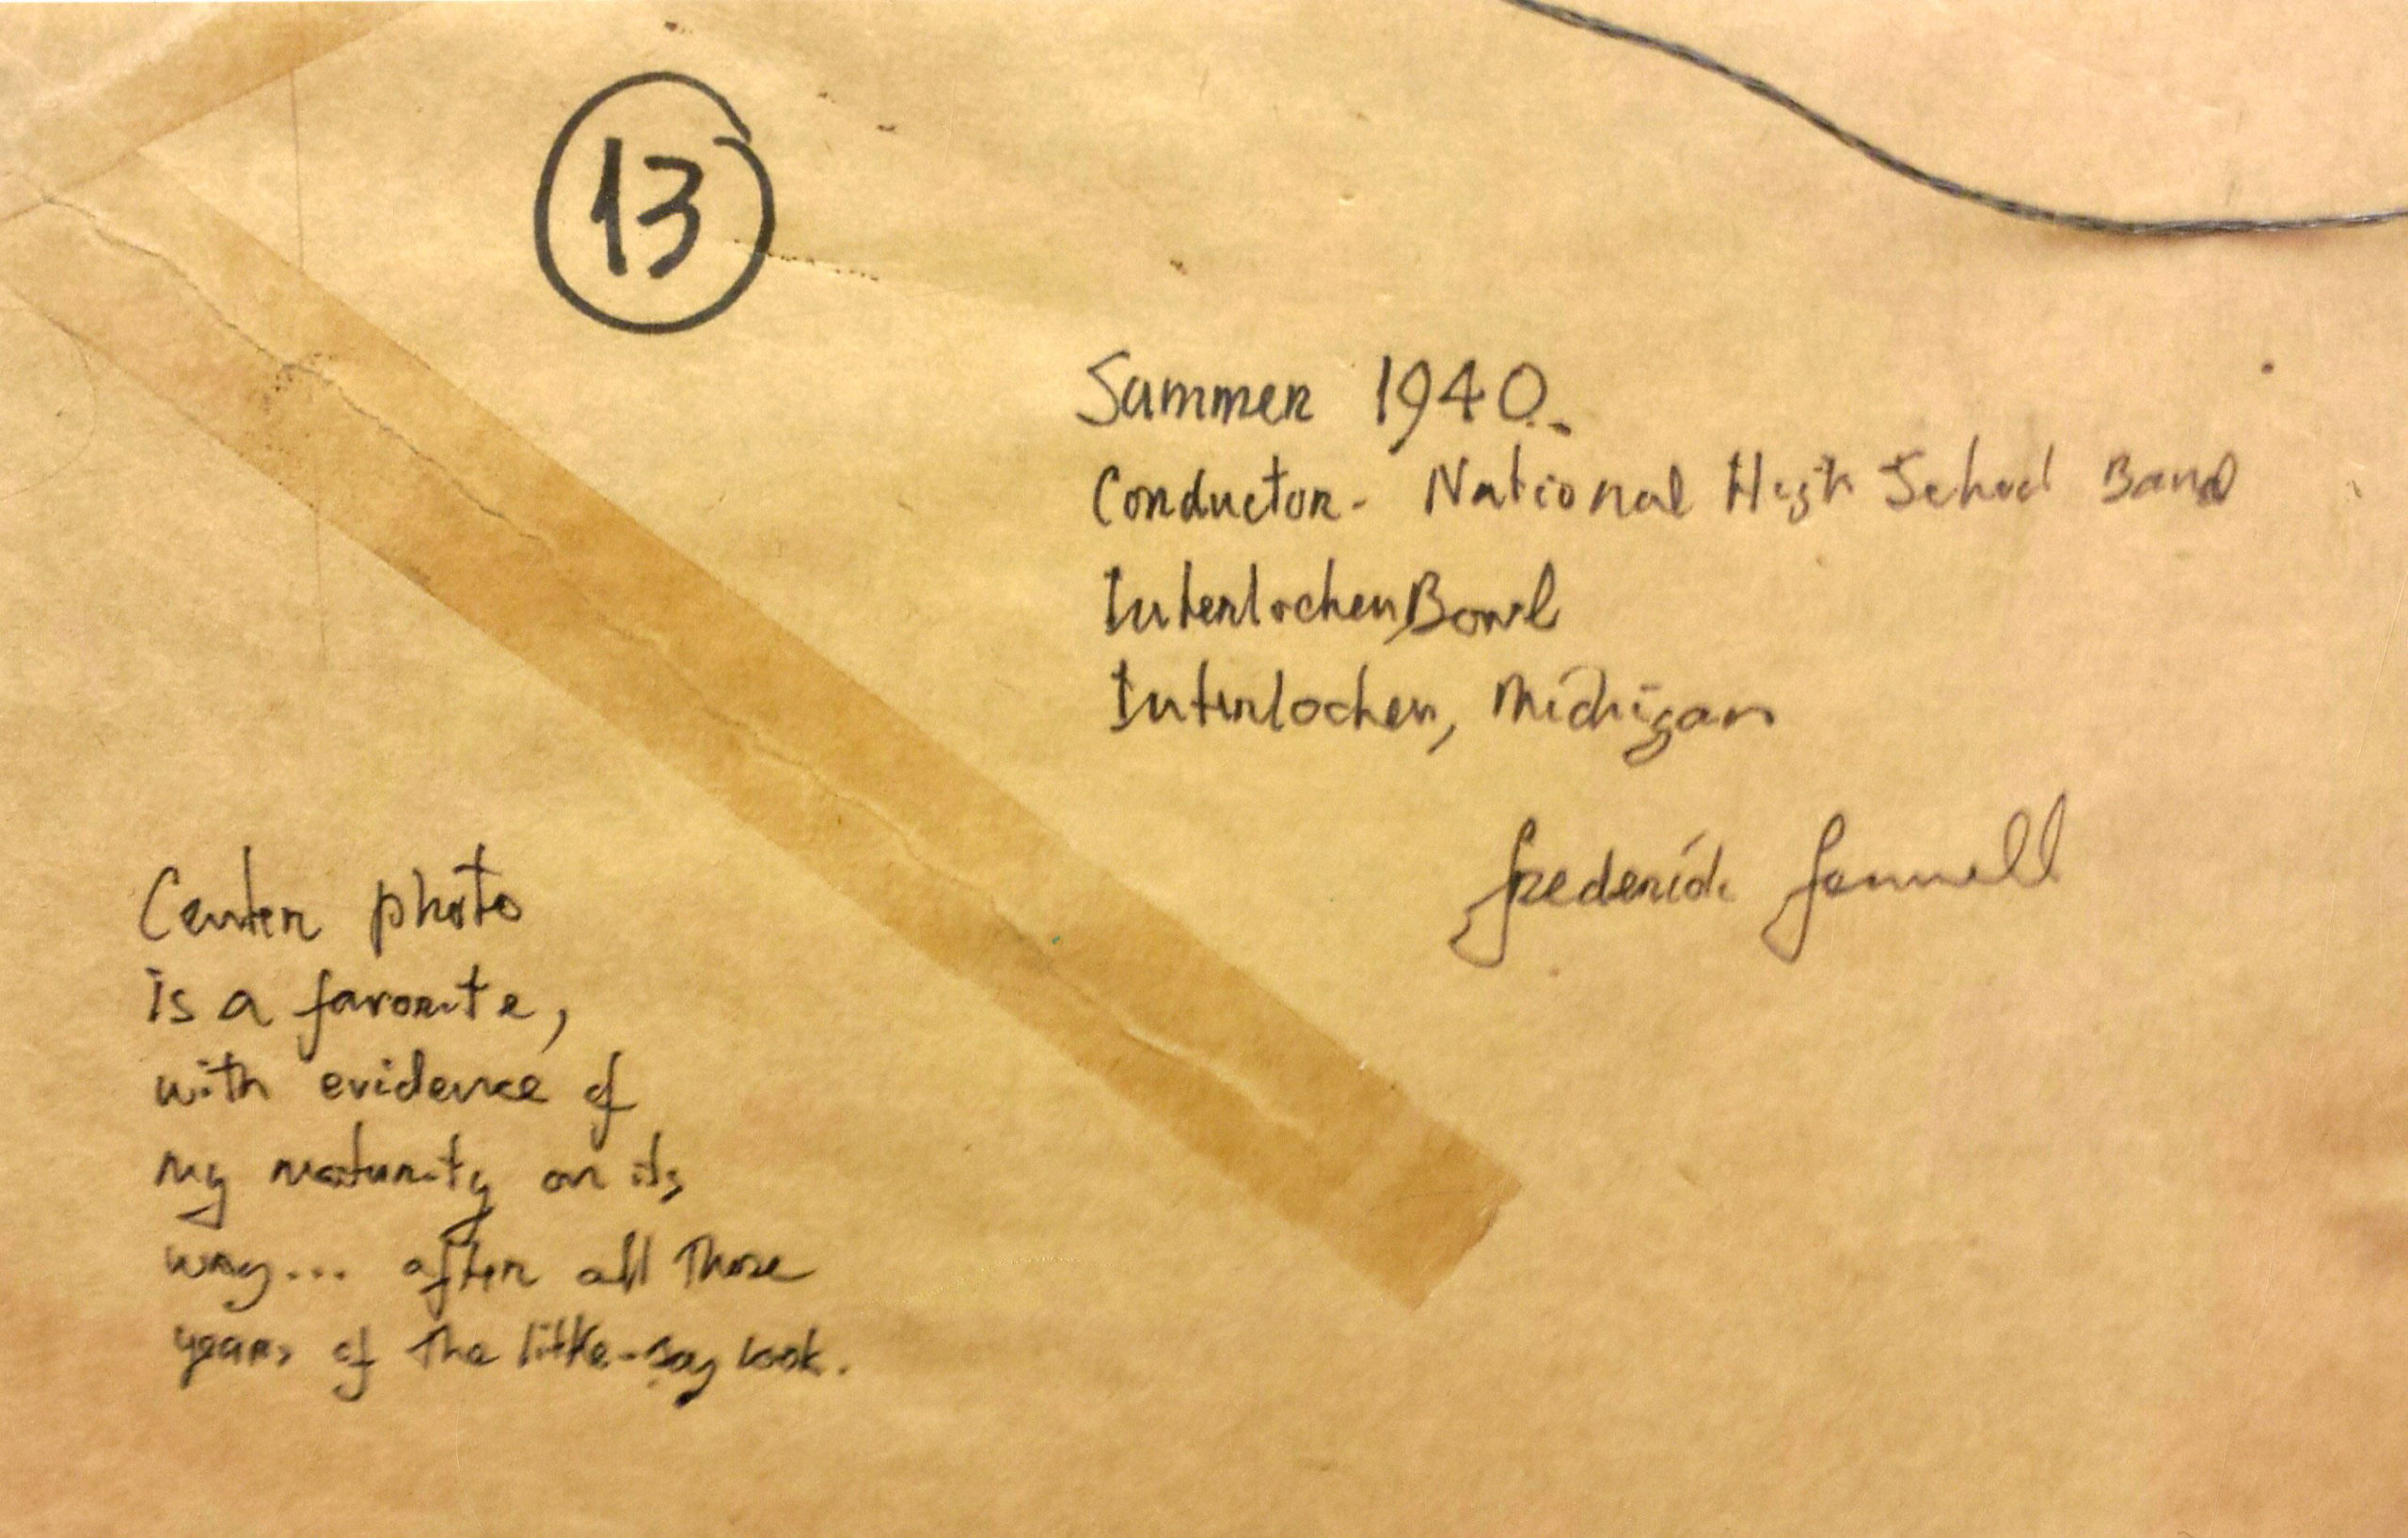 13
Summer 1940.
Conductor - National High School Band
Interlochen Bowl
Interlochen, Michigan
Frederick Fennell
Center photo
is a favorite,
with evidence of
my maturity on its
way... after all those
years of the little-boy look.